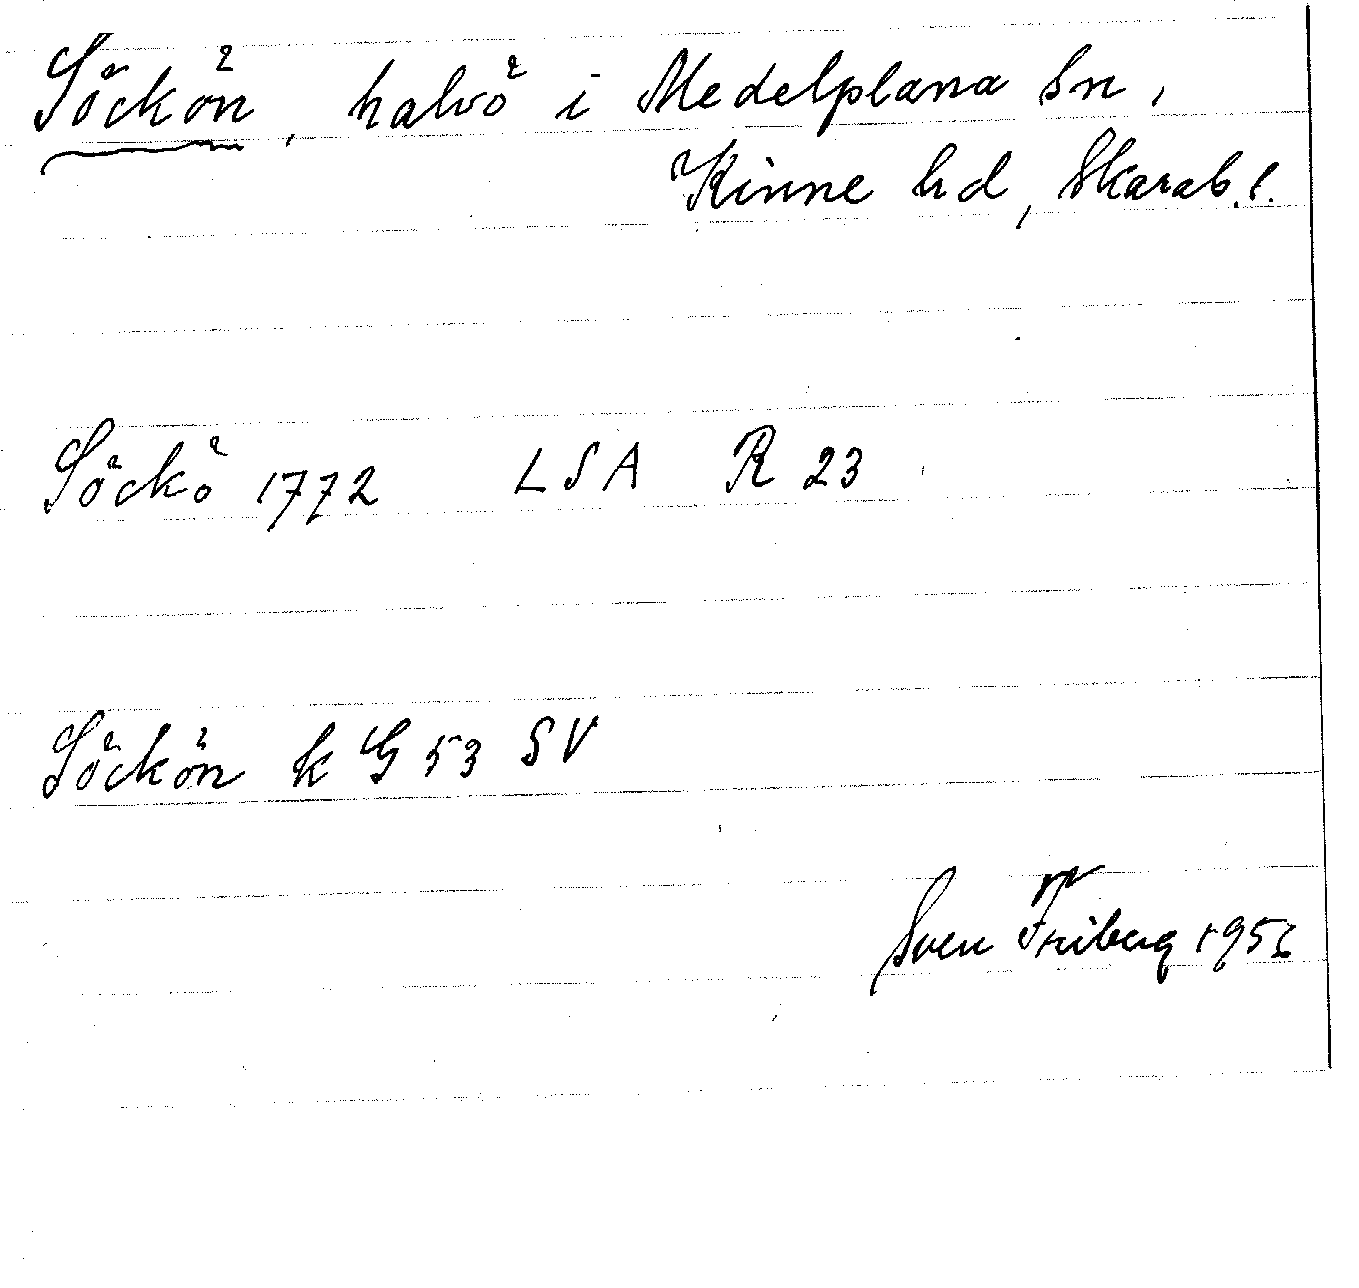 Söckön, halvö i Medelplana sn,
Kinne hd, Skarab. l.
Söckö 1772 LSA R 23
Söckön k G 53 SV
Sven Friberg